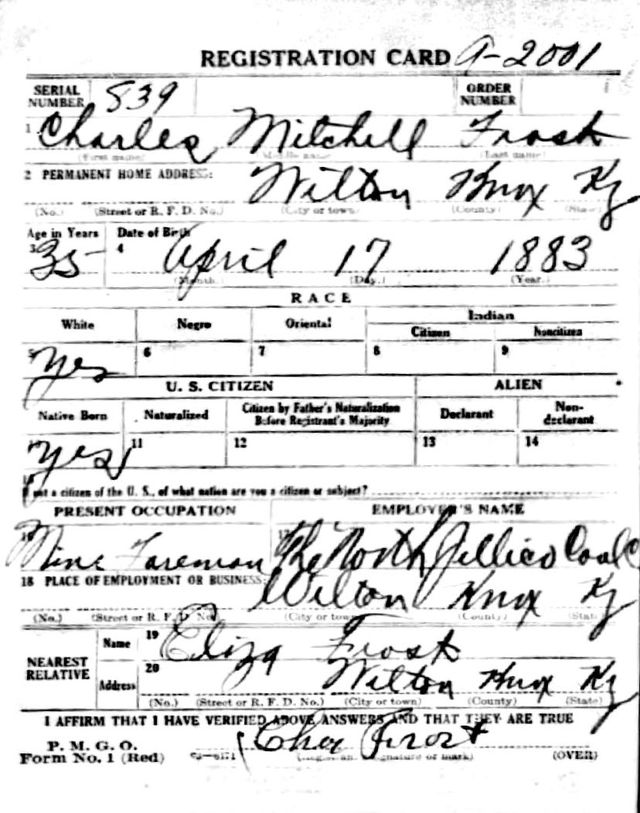 REGISTRATION CARD A-2001
SERIAL NUMBER 839 ORDER NUMBER
1 Charles Mitchell Frost
(First name) (Middle name) (Last name)
2 PERMANENT HOME ADDRESS: Wilton Knox Ky
(No.) (Street or R. F. D. No.) (City or town) (County) (State)
Age in Years Date of Birth
3 35 4 April 17 1883
(Month.) (Day.) (Year.)
RACE
White Negro Oriental Indian
Citizen Noncitizen
5 Yes 6 7 8 9
U. S. CITIZEN ALIEN
Native Born Naturalized Citizen by Father's Naturalization Before Registrant's Majority Declarant Non-declarant
Yes 11 12 13 14
If not a citizen of the U. S., of what nation are you a citizen or subject?
PRESENT OCCUPATION EMPLOYER'S NAME
Mine Foreman The North Jellico Coal C
18 PLACE OF EMPLOYMENT OR BUSINESS: Wilton Knox Ky
(No.) (Street or R. F. D. No.) (City or town) (County) (State)
NEAREST RELATIVE
Name 19 Eliza Frost
Address 20 Wilton Knox Ky
(No.) (Street or R. F. D. No.) (City or town) (County) (State)
I AFFIRM THAT I HAVE VERIFIED ABOVE ANSWERS AND THAT THEY ARE TRUE
P. M. G. O.
Form No. 1 (Red) Chas Frost
(Registrant's signature or mark) (OVER)